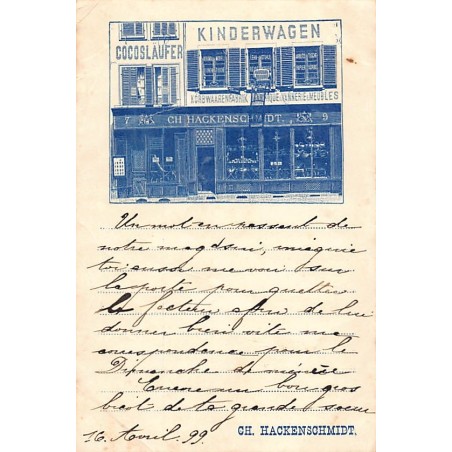 KINDERWAGEN
COCOSLÄUFER
KORBWAARENFABRIK FABRIQUE VANNERIE & MEUBLES
7 CH. HACKENSCHMIDT. 9
Un mot en passant de
notre magasin,
toi aussi me voir sur
la porte pour guetter
le facteur afin de lui
donner bien vite ma
correspondance pour le
Dimanche de
Encore un bon gros
de la grande soeur
16. Avril. 99.
CH. HACKENSCHMIDT.